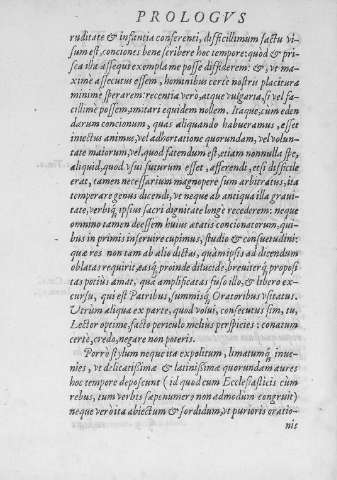 PROLOGVS
ruditate & infantia conferenti, difficillimum factu vi-
sum est, conciones bene scribere hoc tempore: quod & pri-
sca illa assequi exempla me posse diffiderem: &, vt ma-
xime assecutus essem, hominibus certè nostris placitura
minimè sperarem: recentia verò, atque vulgaria, si vel fa-
cillimè possem, imitari equidem nollem. Itaque, cum eden
darum concionum, quas aliquando habueramus, esset
iniectus animus, vel adhortatione quorundam, vel volun-
tate maiorum, vel, quod fatendum est, etiam nonnulla spe,
aliquid, quod vsui futurum esset, afferendi, etsi difficile
erat, tamen necessarium magnopere sum arbitratus, ita
temperare genus dicendi, vt neque ab antiqua illa grauita-
te, verbiq́; ipsius sacri dignitate longè recederem: neque
omnino tamen deessem huius ætatis concionatorum, qui-
bus in primis inseruire cupimus, studio & consuetudini:
quæ res non tam ab alio dictas, quàm ipsi ad dicendum
oblatas requirit, easq́; proinde dilucidè, breuiterq́; proposi-
tas potius amat, quàm amplificatas fuso illo, & libero ex-
cursu, qui est Patribus, summisq́; Oratoribus vsitatus.
Vtrùm aliqua ex parte, quod volui, consecutus sim, tu,
Lector optime, facto periculo melius perspicies: conatum
certè, credo, negare non poteris.
Porrò stylum neque ita expolitum, limatumq́; inue-
nies, vt delicatissimæ & latinissimæ quorundam aures
hoc tempore deposcunt (id quod cum Ecclesiasticis cùm
rebus, tum verbis sæpenumero non admodum congruit)
neque verò ita abiectum & sordidum, vt purioris oratio-
nis